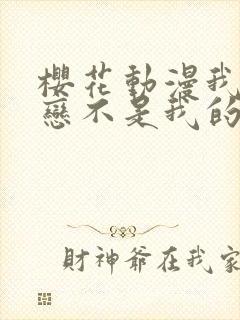 櫻花動漫我
戀不是我的
財神爺在我家